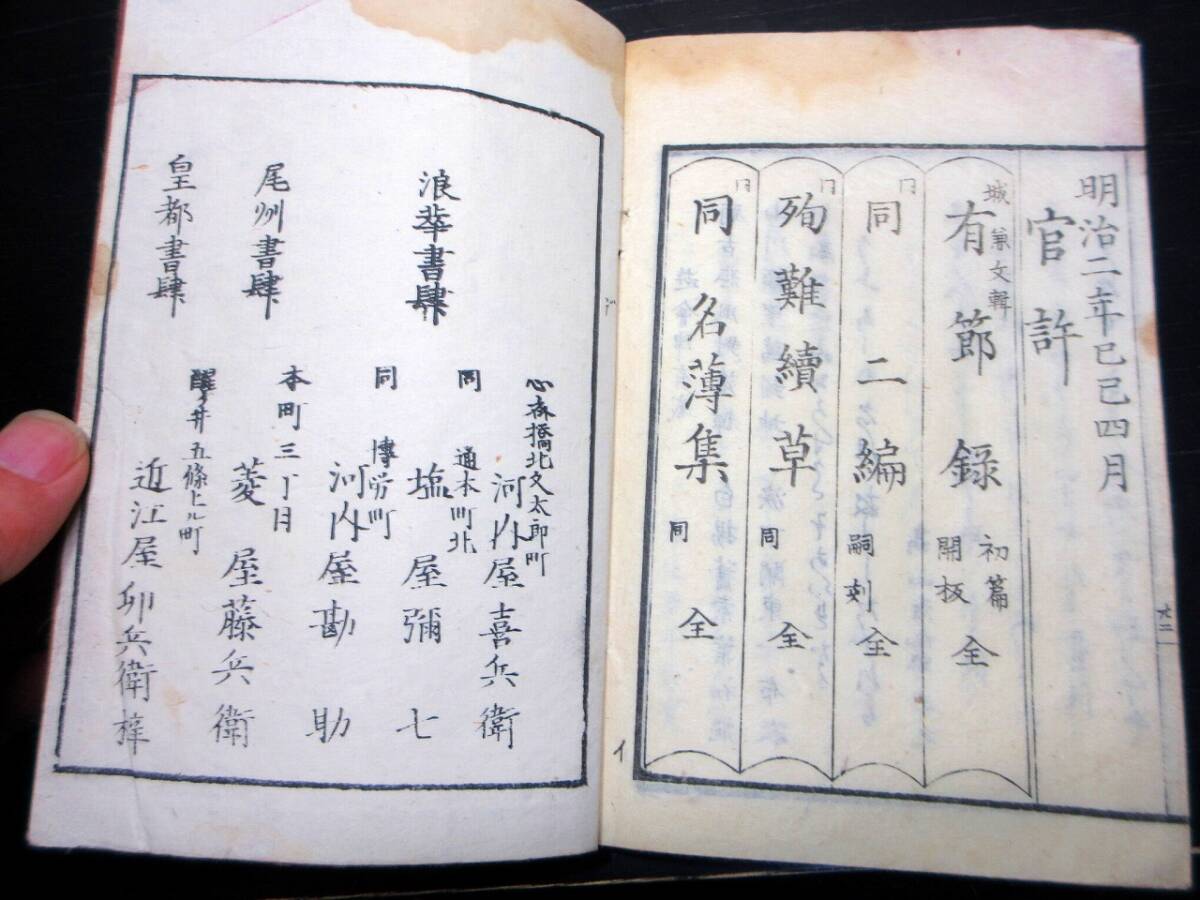 明治二年己巳四月
官許
城兼文輯
有節録 初篇開板 全
同
同二編 嗣刻 全
同
殉難續草 同 全
同
同名薄集 同 全
浪華書肆
心斎橋北久太郎町
河内屋喜兵衛
同 通本町北
塩屋彌七
同 博労町
河内屋勘助
尾州書肆
本町三丁目
菱屋藤兵衛
皇都書肆
醒井五條上ル町
近江屋卯兵衛梓